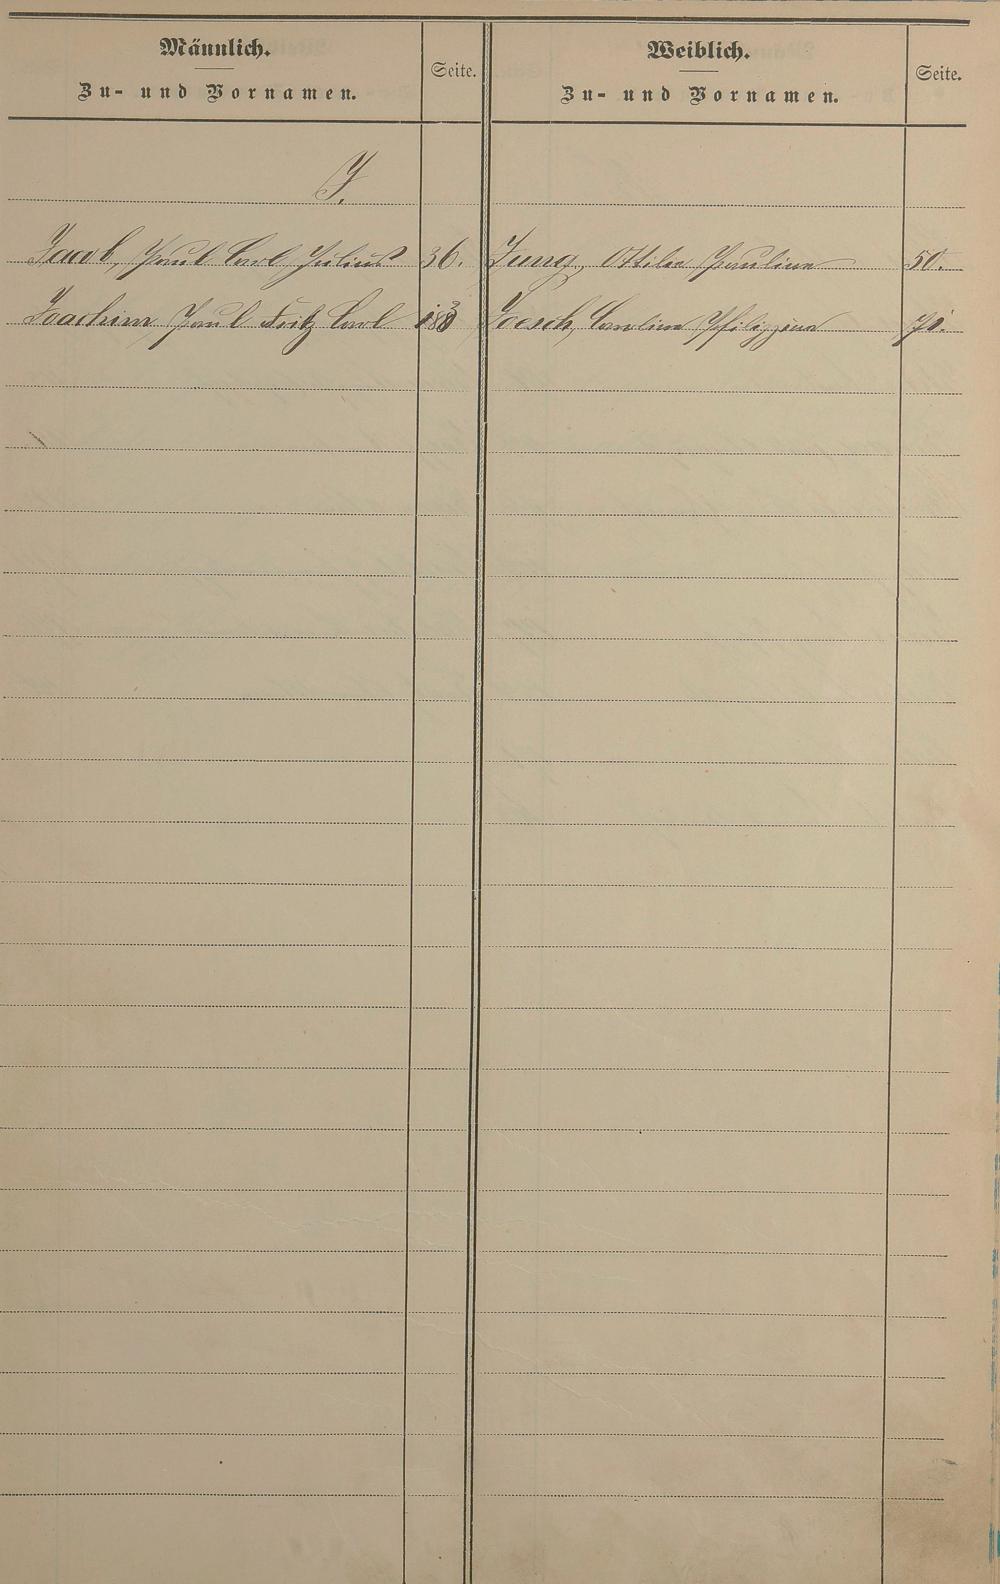 Männlich.
Zu- und Vornamen.
Seite.
Weiblich.
Zu- und Vornamen.
Seite.
J.
Jacob, Paul Carl Julius 36.
Jung, Ottilie Pauline 50.
Joachim Paul Fritz Carl
Joesch, Caroline Philippine 71.